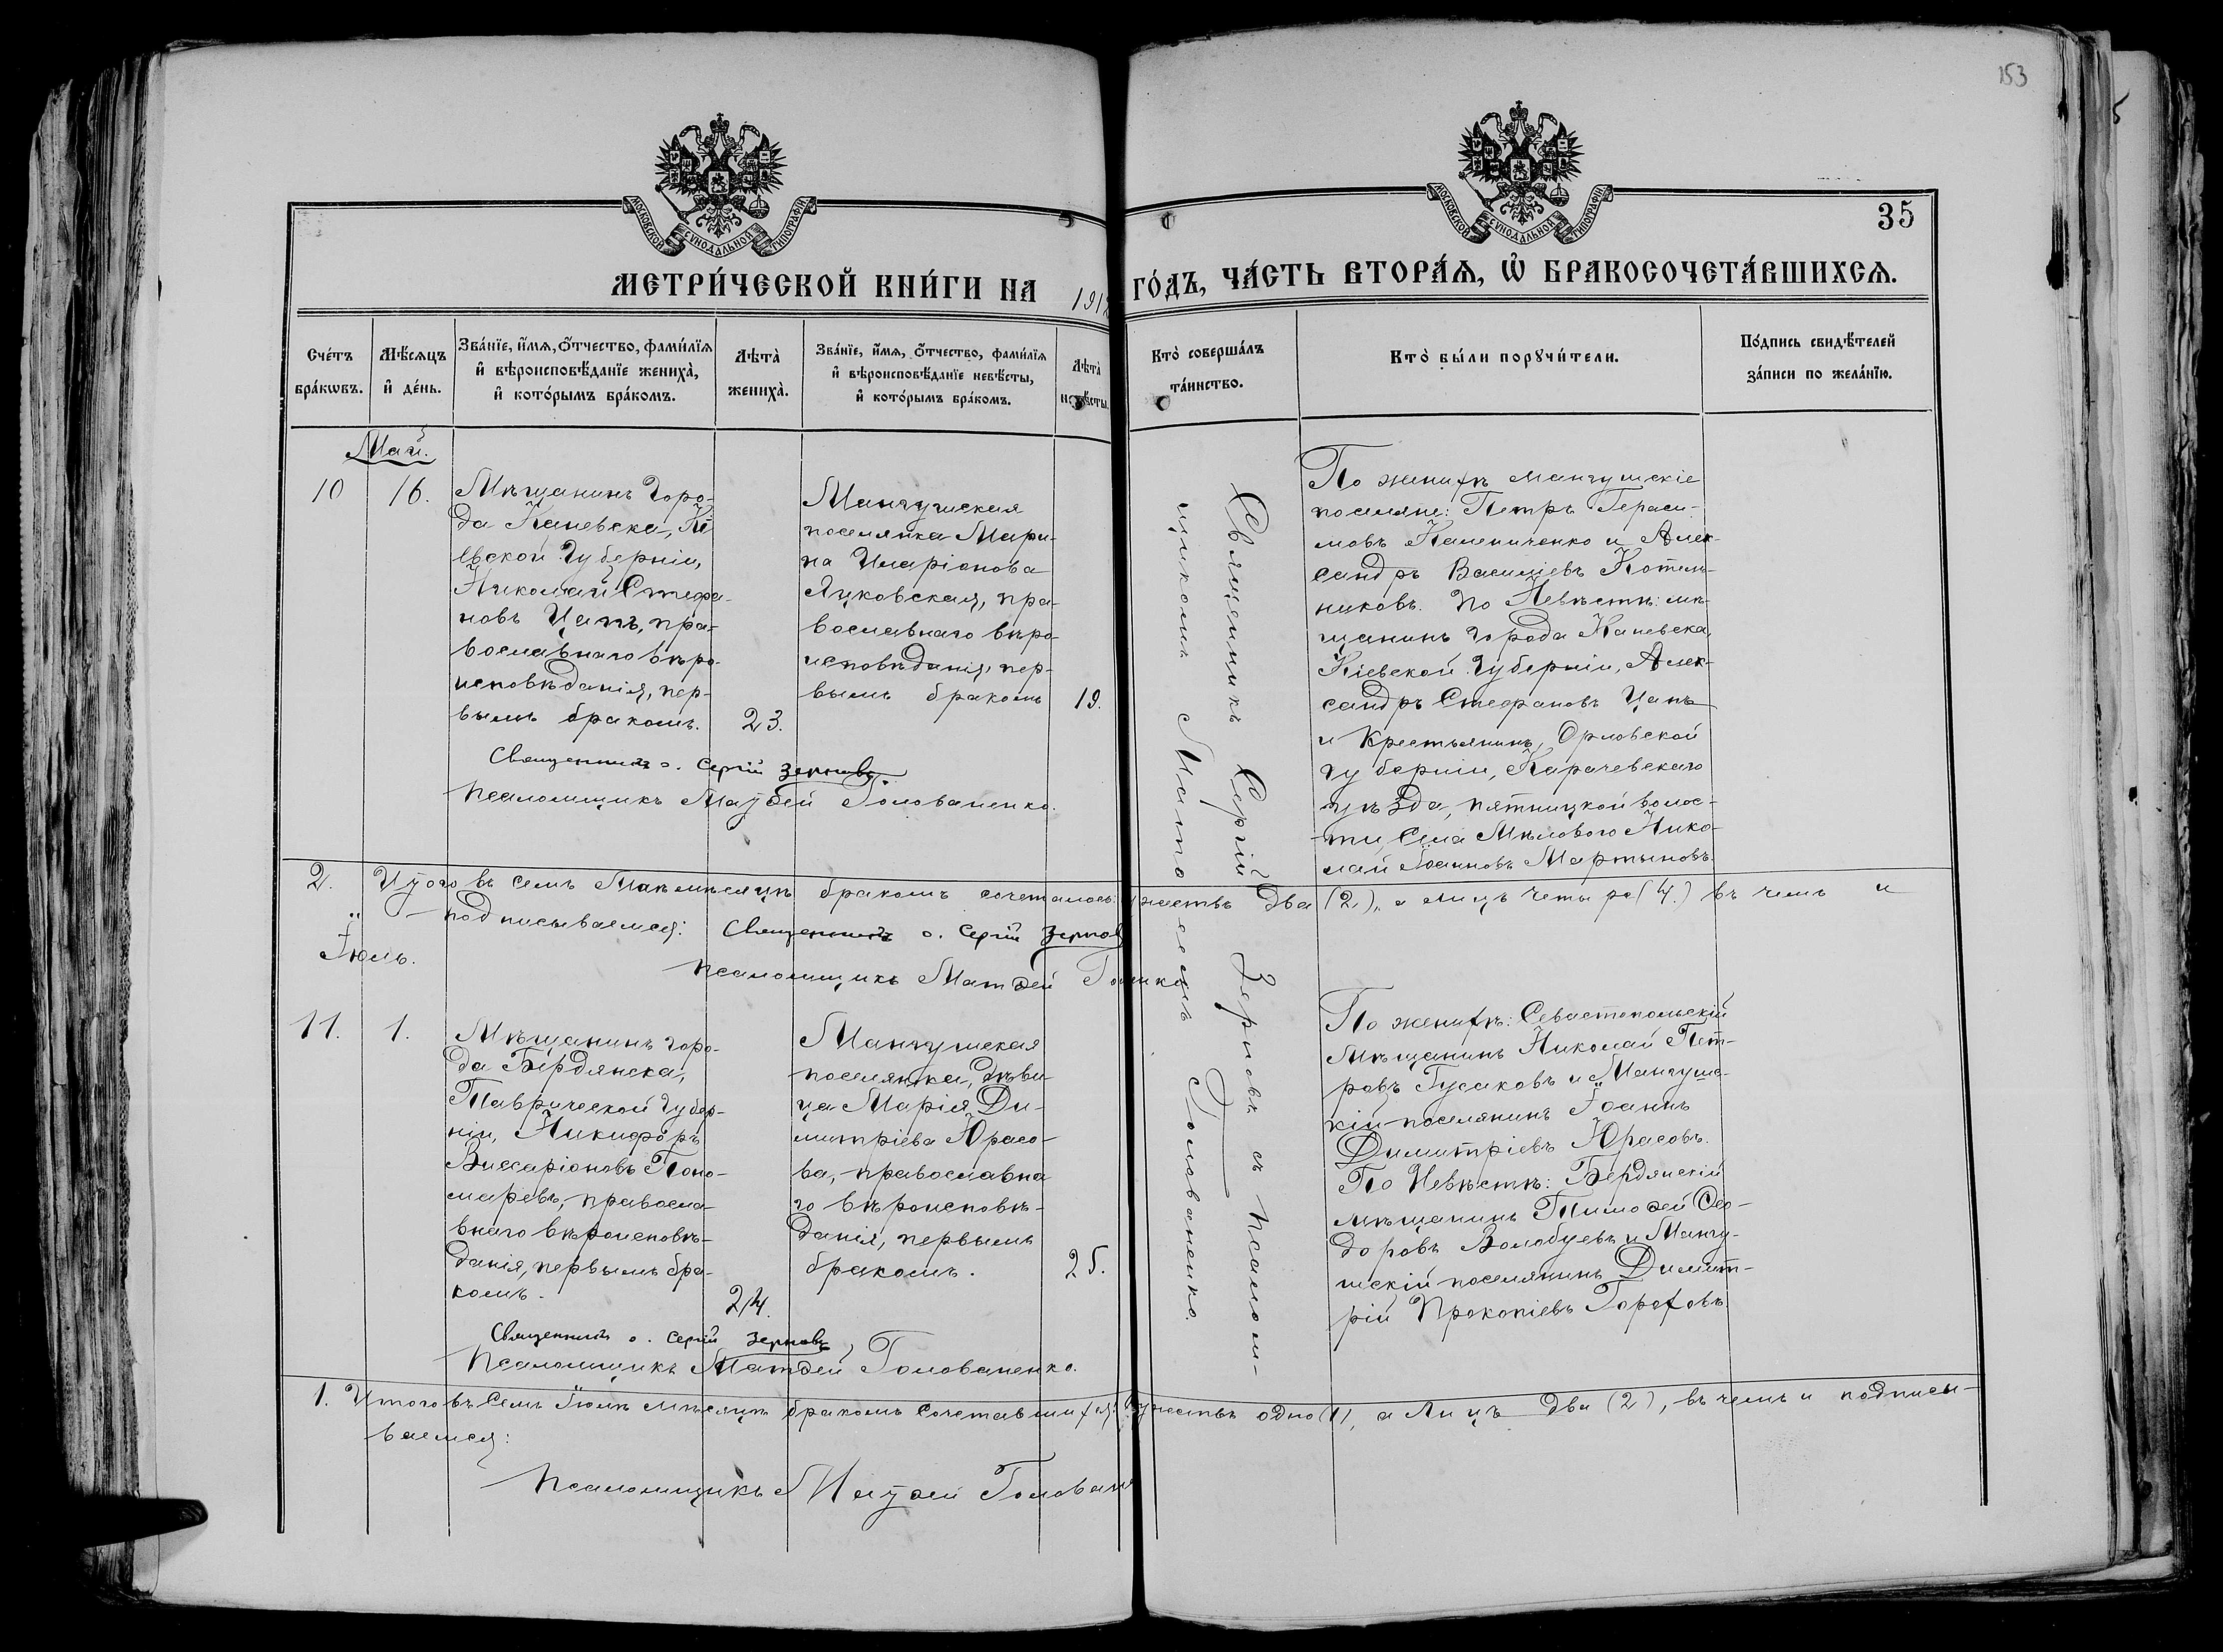 153
МОСКОВСКОЙ СѴНОДАЛЬНОЙ ТИПОГРАФІИ
МОСКОВСКОЙ СѴНОДАЛЬНОЙ ТИПОГРАФІИ
35
МЕТРИ́ЧЕСКОЙ КНИ́ГИ НА 191
ГО́ДЪ, ЧА́СТЬ ВТОРА́Ѧ, Ѡ҆ БРАКОСОЧЕТА́ВШИХСѦ.
Сче́тъ
бра́кѡвъ.
Мѣ́сяцъ
и҆ де́нь.
Зва́нїе, и҆́мѧ, ѻ҆́тчество, фами́лїѧ
и҆ вѣроисповѣ́данїе жениха̀,
и҆ кото́рымъ бра́комъ.
Лѣта̀
жениха̀.
Зва́нїе, и҆́мѧ, ѻ҆́тчество, фами́лїѧ
и҆ вѣроисповѣ́данїе невѣ́сты,
и҆ кото́рымъ бра́комъ.
Лѣта̀
невѣ́сты.
Кто̀ соверша́лъ
та́инство.
Кто̀ бы́ли порꙋчи́тели.
По́дпись свидѣ́телей
за́писи по жела́нїю.
Май.
10
16.
Мѣщанинъ Горо-
да Каневска, Кі
евской Губерніи,
Николай Стефа-
новъ Цапъ, пра-
вославнаго вѣро-
исповѣданія, пер-
вымъ бракомъ.
23.
Мангушская
поселянка Мари-
на Иларіонова
Яцковская, пра-
вославнаго вѣро-
исповѣданія, пер-
вымъ бракомъ
19.
Священникъ о. Сергій Зерновъ.
Псаломщикъ Матѳей Голованенко.
Священникъ Сергій Зерновъ съ псалом-
щикомъ Матѳеемъ Голованенко.
По женихѣ мангушскіе
поселяне: Петръ Гераси-
мовъ Калениченко и Алек-
сандръ Василіевъ Котель-
никовъ. По Невѣстѣ: мѣ-
щанинъ города Каневска,
Кіевской Губерніи, Алек-
сандръ Стефановъ Цапъ
и Крестьянинъ, Орловской
губерніи, Карачевскаго
уѣзда, пятницкой волос-
ти, Села Мѣлового Нико-
лай Іоанновъ Мартыновъ.
2. Итого въ семъ Маѣ мѣсяцѣ бракомъ сочеталось: Два (2), а лицъ четыре (4.) въ чемъ и
подписываемся: Священникъ о. Сергій Зерновъ
Псаломщикъ Матѳей
Іюль.
11.
1.
Мѣщанинъ горо-
да Бердянска,
Таврической Губер-
ніи, Никифоръ
Виссаріоновъ Поно-
маревъ, правосла-
внаго вѣроисповѣ-
данія, первымъ бра-
комъ.
24.
Мангушская
поселянка, дѣви-
ца Марія Ди-
митріева Юрасо-
ва, православна
го вѣроисповѣ-
данія, первымъ
бракомъ.
25.
Священникъ о. Сергій Зерновъ
Псаломщикъ Матѳей Голованенко.
По женихѣ: Севастопольскій
Мѣщанинъ Николай Пет-
ровъ Гусаковъ и Мангушс-
кій поселянинъ Іоаннъ
Димитріевъ Юрасовъ.
По Невѣстѣ: Бердянскій
мѣщанинъ Тимоѳей Сео-
доровъ Волобуевъ и Мангу-
шскій поселянинъ Димит-
рій Прокопіевъ Гороховъ.
1. Итого въ Семъ Іюлѣ мѣсяцѣ бракомъ Сочетавшихся: одно (1), а Лицъ Два (2), въ чемъ и подписы-
ваемся:
Псаломщикъ Матѳей Голован